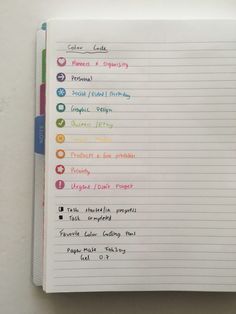 Color Code
Planners & Organising
Personal
Social/Event/Birthday
Graphic Design
Business/Etsy
Products & free printables
Priority
Urgent/Don't Forget
Task started/in progress
Task completed
Favorite Color Coding Pens
PaperMate InkJoy
Gel 0.7